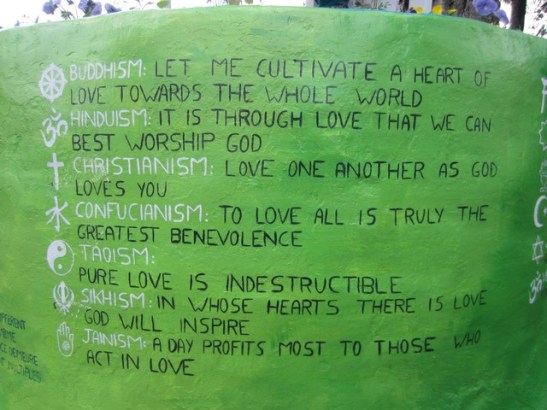 BUDDHISM: LET ME CULTIVATE A HEART OF
LOVE TOWARDS THE WHOLE WORLD
HINDUISM: IT IS THROUGH LOVE THAT WE CAN
BEST WORSHIP GOD
CHRISTIANISM: LOVE ONE ANOTHER AS GOD
LOVES YOU
CONFUCIANISM: TO LOVE ALL IS TRULY THE
GREATEST BENEVOLENCE
TAOISM:
PURE LOVE IS INDESTRUCTIBLE
SIKHISM: IN WHOSE HEARTS THERE IS LOVE
GOD WILL INSPIRE
JAINISM: A DAY PROFITS MOST TO THOSE WHO
ACT IN LOVE